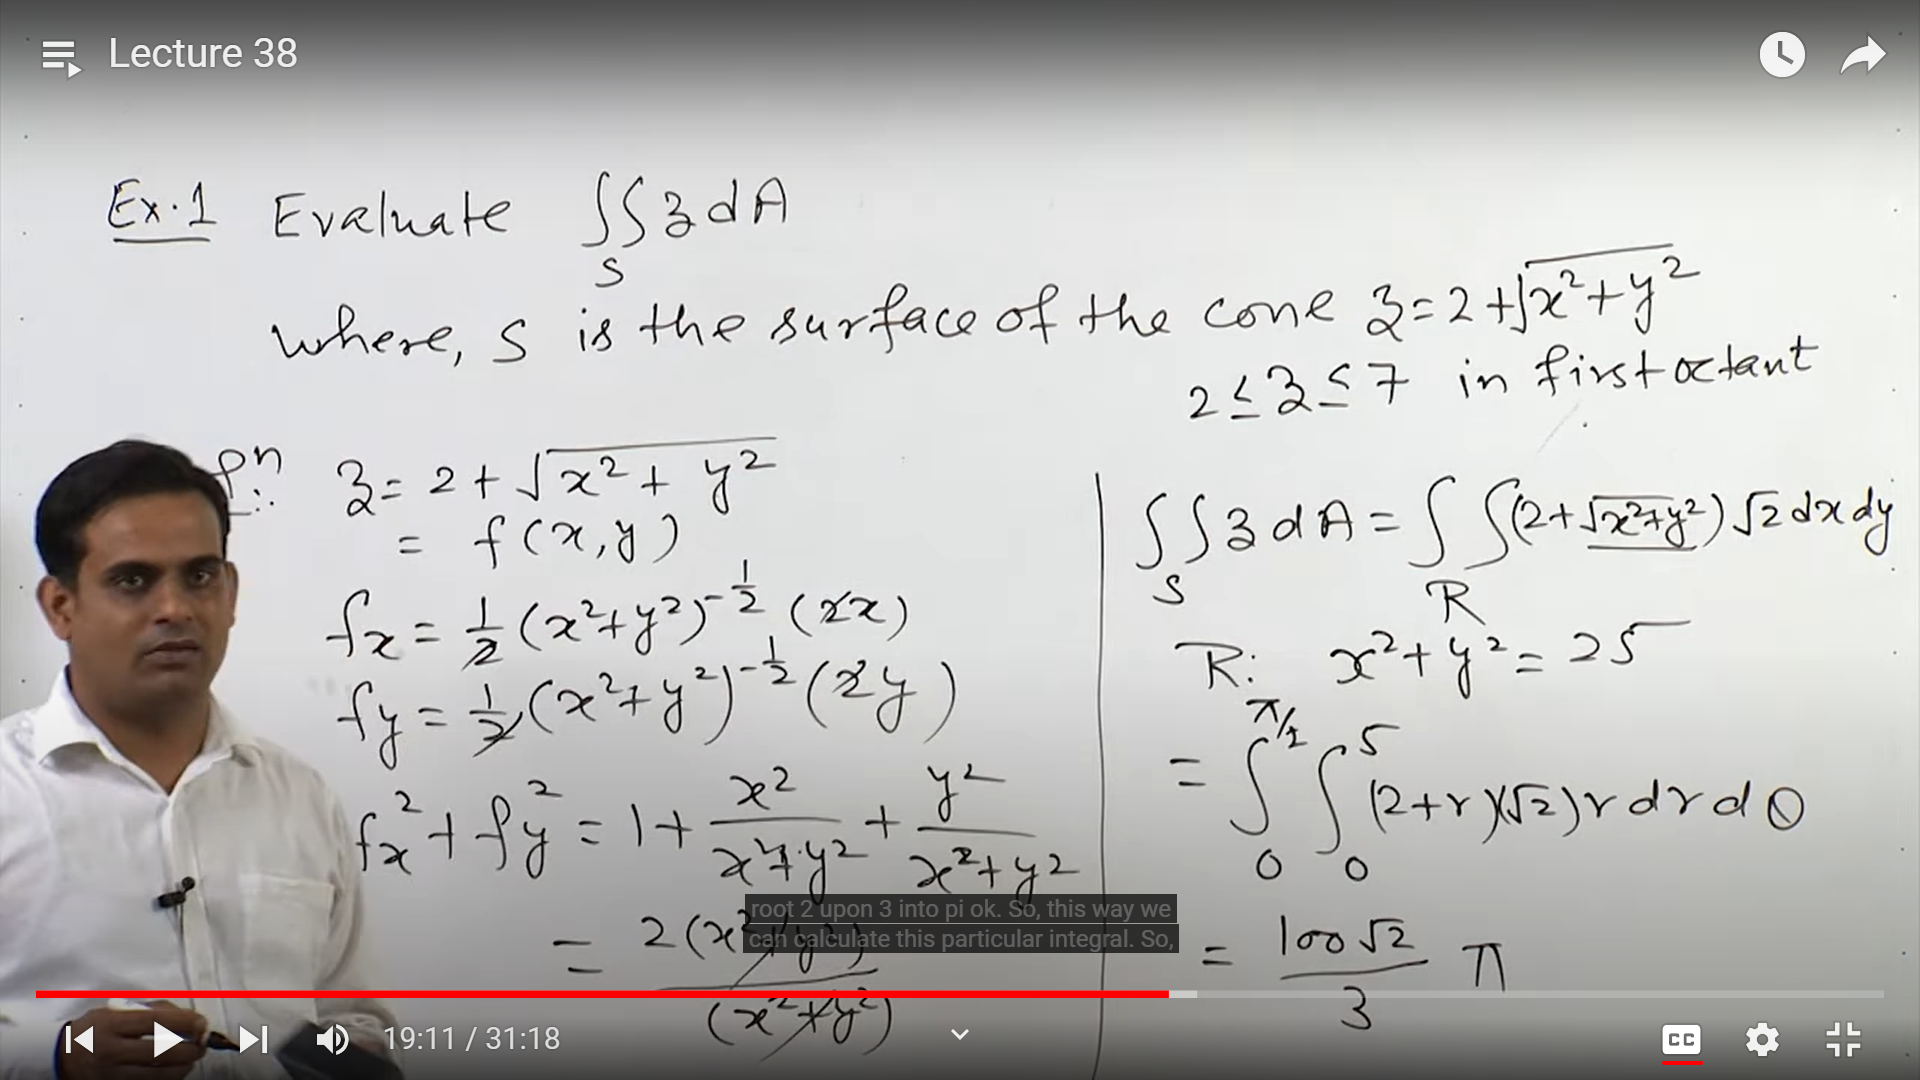 Lecture 38
Ex.1 Evaluate ∫∫_S z dA
where, S is the surface of the cone z = 2 + √(x² + y²)
2 ≤ z ≤ 7 in first octant
z = 2 + √(x² + y²)
= f(x, y)
fx = 1/2 (x² + y²)^(-1/2) (2x)
fy = 1/2 (x² + y²)^(-1/2) (2y)
fx² + fy² = 1 + x²/(x² + y²) + y²/(x² + y²)
= 2(x² + y²)/(x² + y²)
∫∫_S z dA = ∫∫_R (2 + √(x² + y²)) √2 dx dy
R: x² + y² = 25
= ∫_0^(π/2) ∫_0^5 (2 + r)(√2) r dr dθ
= 100√2/3 π
root 2 upon 3 into pi ok. So, this way we
can calculate this particular integral. So,
19:11 / 31:18
CC